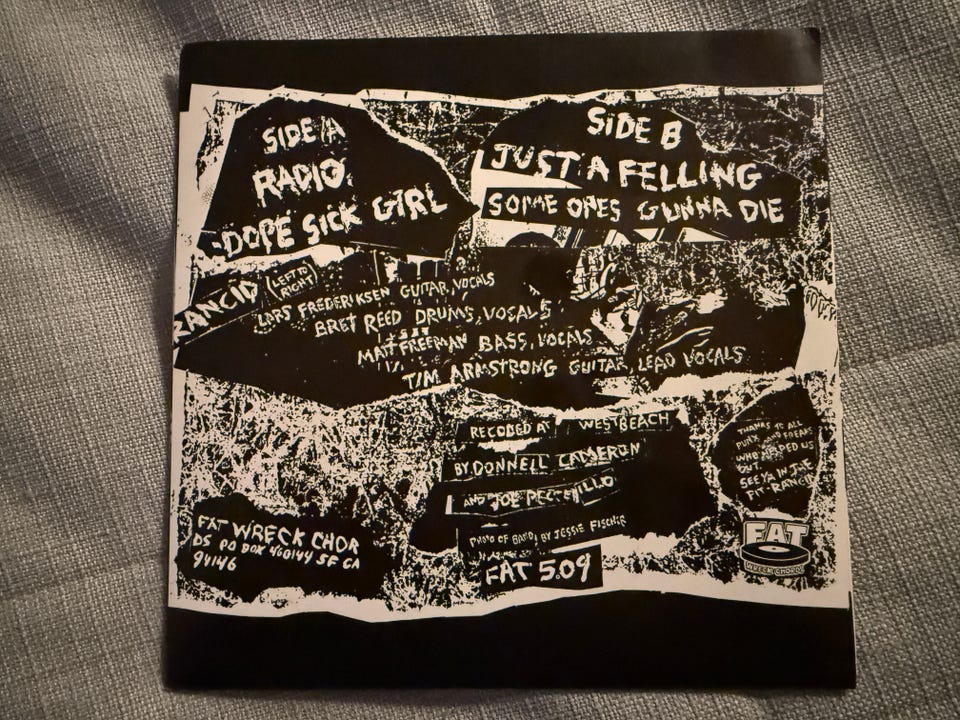 SIDE A
RADIO
DOPE SICK GIRL
SIDE B
JUST A FELLING
SOME ONES GUNNA DIE
RANCID (LEFT TO RIGHT)
LARS FREDERIKSEN GUITAR, VOCALS
BRET REED DRUMS, VOSALS
MATT FREEMAN BASS, VOCALS
TIM ARMSTRONG GUITAR, LEAD VOCALS
RECODED AT WESTBEACH
BY DONNELL CAMERON
AND JOE
PHOTO OF BAND BY JESSIE FISCHER
FAT 509
THANKS TO ALL
PUNX AND FREAKS
WHO HELPED US
OUT.
SEE YA IN THE
PIT-RANCID
FAT WRECK CHOR
DS PO BOX 460144 SF CA
94146
FAT
WRECK CHORDS